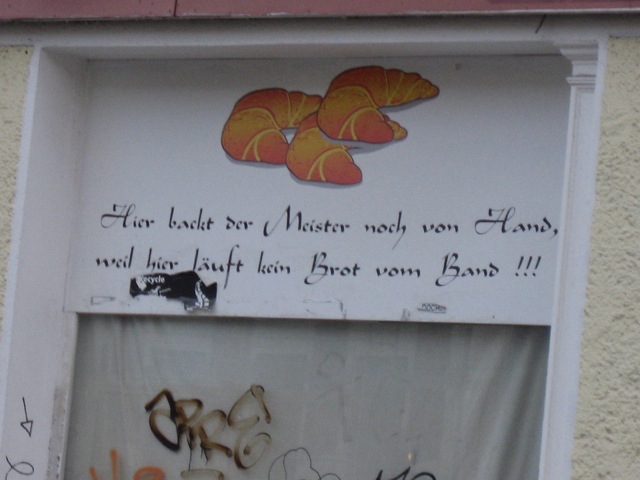 Hier backt der Meister noch von Hand,
weil hier läuft kein Brot vom Band !!!
recycle